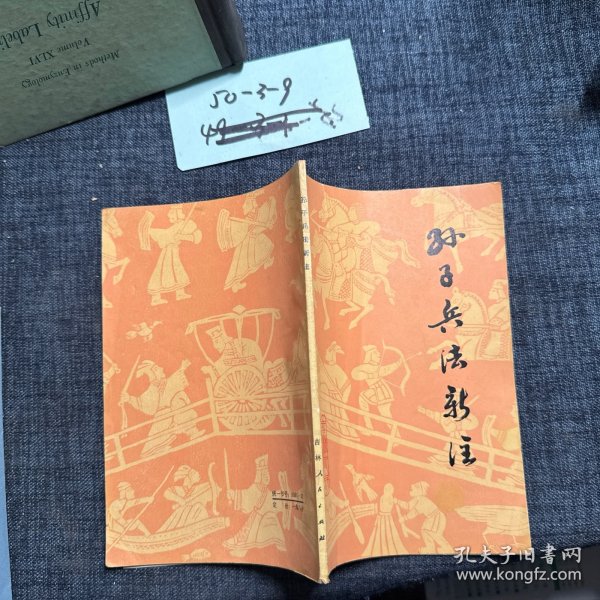 Methods in Enzymology
Volume XLVI
Affinity Labeli
50-3-9
孙子兵法新注
孙子兵法新注
吉林人民出版社
孔夫子旧书网
www.kongfz.com